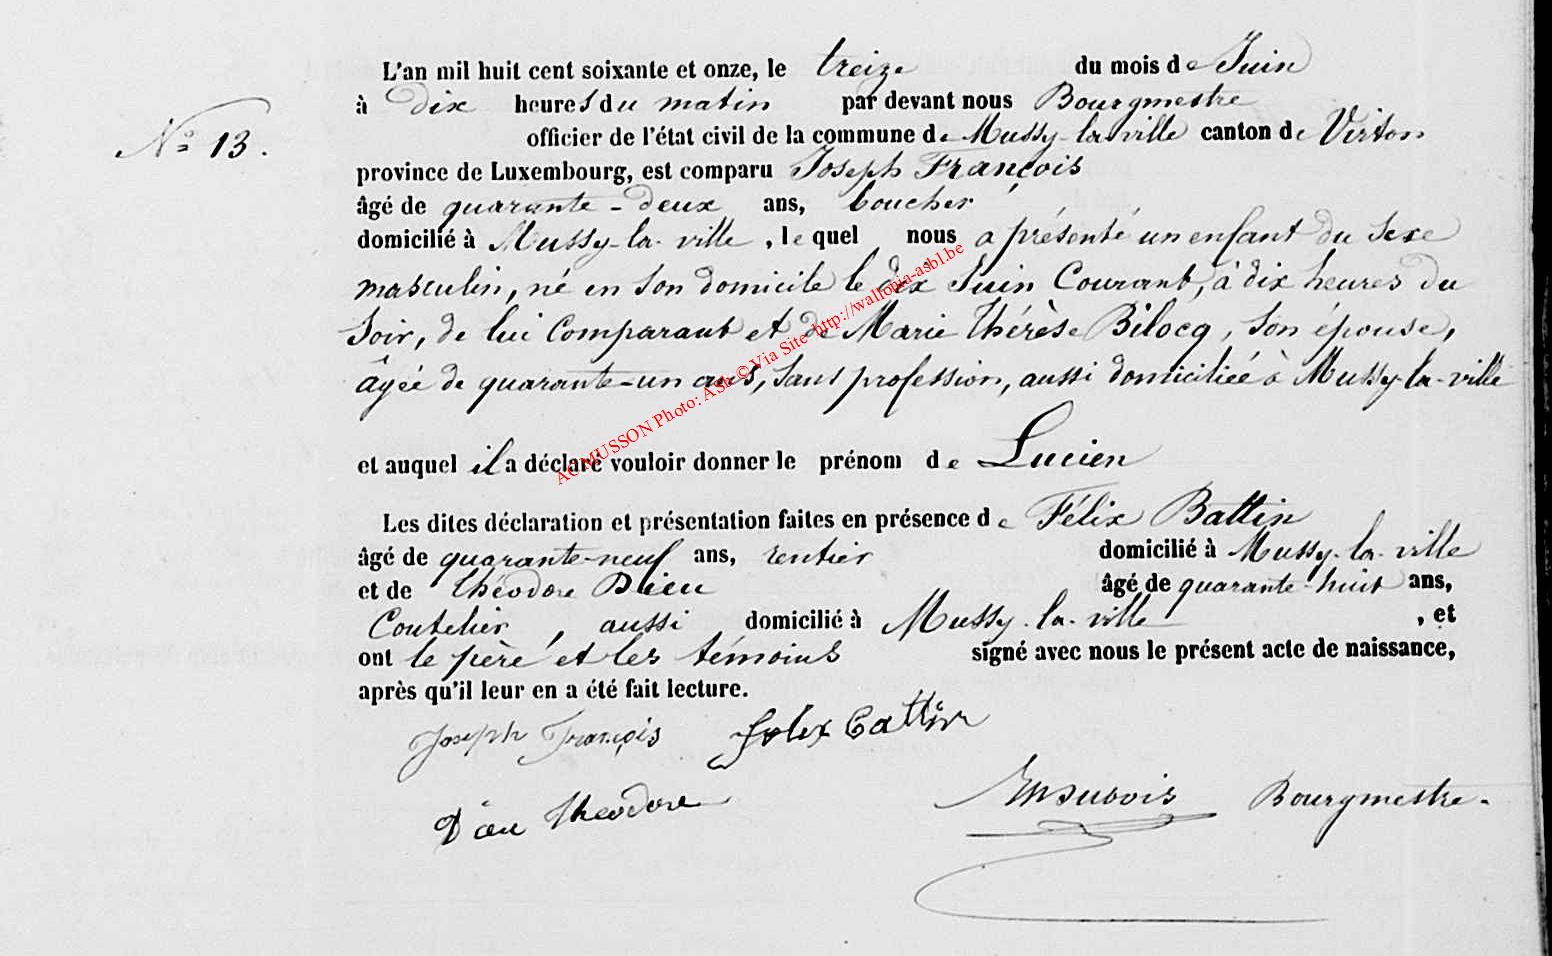 L'an mil huit cent soixante et onze, le treize du mois de Juin
à dix heures du matin par devant nous Bourgmestre
N° 13.
officier de l'état civil de la commune de Mussy-la-ville canton de Virton
province de Luxembourg, est comparu Joseph François
âgé de quarante-deux ans, boucher
domicilié à Mussy-la-ville, lequel nous a présenté un enfant du sexe
masculin, né en son domicile le dix Juin Courant, à dix heures du
soir, de lui Comparant et de Marie Thérèse Bilocq, son épouse,
âgée de quarante-un ans, sans profession, aussi domiciliée à Mussy-la-ville
AC MUSSON Photo: ASBL © Via Site http://wallonia-asbl.be
et auquel il a déclaré vouloir donner le prénom de Lucien
Les dites déclaration et présentation faites en présence de Félix Battin
âgé de quarante-neuf ans, rentier domicilié à Mussy-la-ville
et de Théodore Dieu âgé de quarante-huit ans,
Coutelier, aussi domicilié à Mussy-la-ville, et
ont le père et les témoins signé avec nous le présent acte de naissance,
après qu'il leur en a été fait lecture.
Joseph François Felix Battin
Théodore
Bourgmestre.